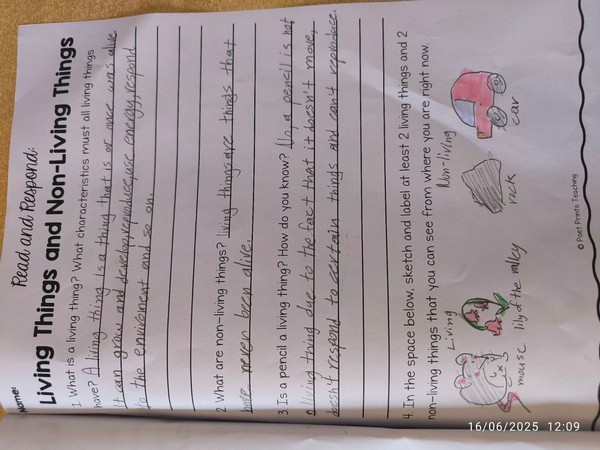 Name:
Read and Respond:
Living Things and Non-Living Things
1. What is a living thing? What characteristics must all living things
have? A living thing is a thing that is or once was alive
It can grow and develop, reproduce, use energy, respond
to the enviroment and so on.
2. What are non-living things? living things are things that
have never been alive.
3. Is a pencil a living thing? How do you know? No, a pencil is not
a living thing due to the fact that it doesn't move,
doesn't respond to certain things and can't reproduce.
4. In the space below, sketch and label at least 2 living things and 2
non-living things that you can see from where you are right now.
Living
Non-living
mouse
lily of the valley
rock
car
© Poet Prints Teaching
16/06/2025 12:09